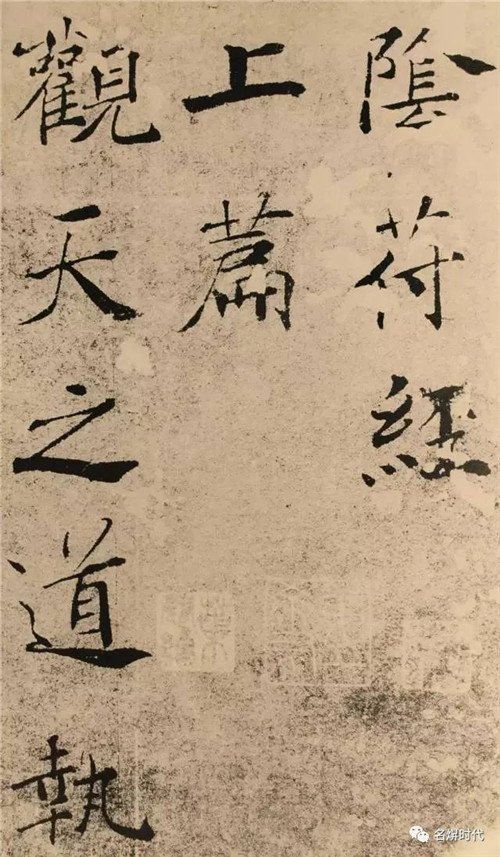 陰符經
上篇
觀天之道執
时代